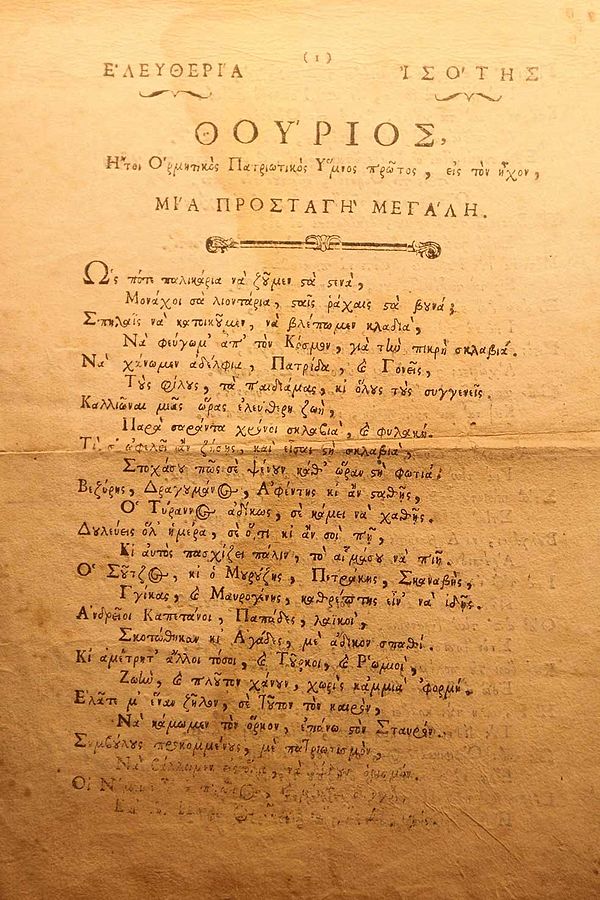 (1)
Ε'ΛΕΥΘΕΡΙ'Α ἸΣΟ'ΤΗΣ
ΘΟΥ'ΡΙΟΣ,
Η῎τοι Ο῾ρμητικὸς Πατριωτικὸς Υ῞μνος πρῶτος, εἰς τὸν ἦχον,
ΜΙ'Α ΠΡΟΣΤΑΓΗ' ΜΕΓΑ'ΛΗ.
Ω῾ς πότε παλικάρια νὰ ζοῦμεν στὰ στενὰ,
Μονάχοι σὰ λιοντάρια, σταῖς ῥάχαις στὰ βουνά;
Σπηλαῖς νὰ κατοικοῦμεν, νὰ βλέπωμεν κλαδιὰ,
Νὰ φεύγωμ' ἀπ' τὸν Κόσμον, γιὰ τὴν πικρὴ σκλαβιά.
Νὰ χάνωμεν ἀδέλφια, Πατρίδα, ϗ Γονεῖς,
Τοὺς φίλους, τὰ παιδιάμας, κι ὅλους τοὺς συγγενεῖς.
Καλλιῶναι μιᾶς ὥρας ἐλεύθερη ζωὴ,
Παρὰ σαράντα χρόνοι σκλαβιὰ, ϗ φυλακή.
Τί σ' ὠφελεῖ ἂν ζήσῃς, καὶ εἶσαι στὴ σκλαβιὰ,
Στοχάσου πῶς σὲ ψένουν καθ' ὥραν στὴ φωτιά;
Βεζύρης, Δραγουμάνος, Α᾿φέντης κι ἂν σταθῇς,
Ο῾ Τύραννος ἀδίκως, σὲ κάμει νὰ χαθῇς.
Δουλεύεις ὅλ' ἡμέρα, σὲ ὅ,τι κι ἂν σοὶ πῇ,
Κι αὐτὸς πασχίζει πάλιν, τὸ αἷμασου νὰ πιῇ.
Ο῾ Σοῦτζος, κι ὁ Μουρούζης, Πετράκης, Σκαναβῆς,
Γγίκας, ϗ Μαυρογένης, καθρέπτης εἶν' νὰ ἰδῇς.
Α᾿νδρεῖοι Καπετάνοι, Παπάδες, λαϊκοὶ,
Σκοτώθηκαν κι Α᾿γάδες, μὲ ἄδικον σπαθί.
Κι ἀμέτρητ' ἄλλοι τόσοι, ϗ Τοῦρκοι, ϗ Ρ῾ωμιοὶ,
Ζωὴν, ϗ πλοῦτον χάνουν, χωρὶς καμμιὰ 'φορμή.
Ε᾿λᾶτε μ' ἕναν ζῆλον, σὲ τοῦτον τὸν καιρὸν,
Νὰ κάμωμεν τὸν ὅρκον, ἐπάνω στὸν Σταυρόν.
Συμβούλους προκομμένους, μὲ πατριωτισμὸν,
Νὰ βάλλωμεν εἰς ὅλα, νὰ
Οἱ